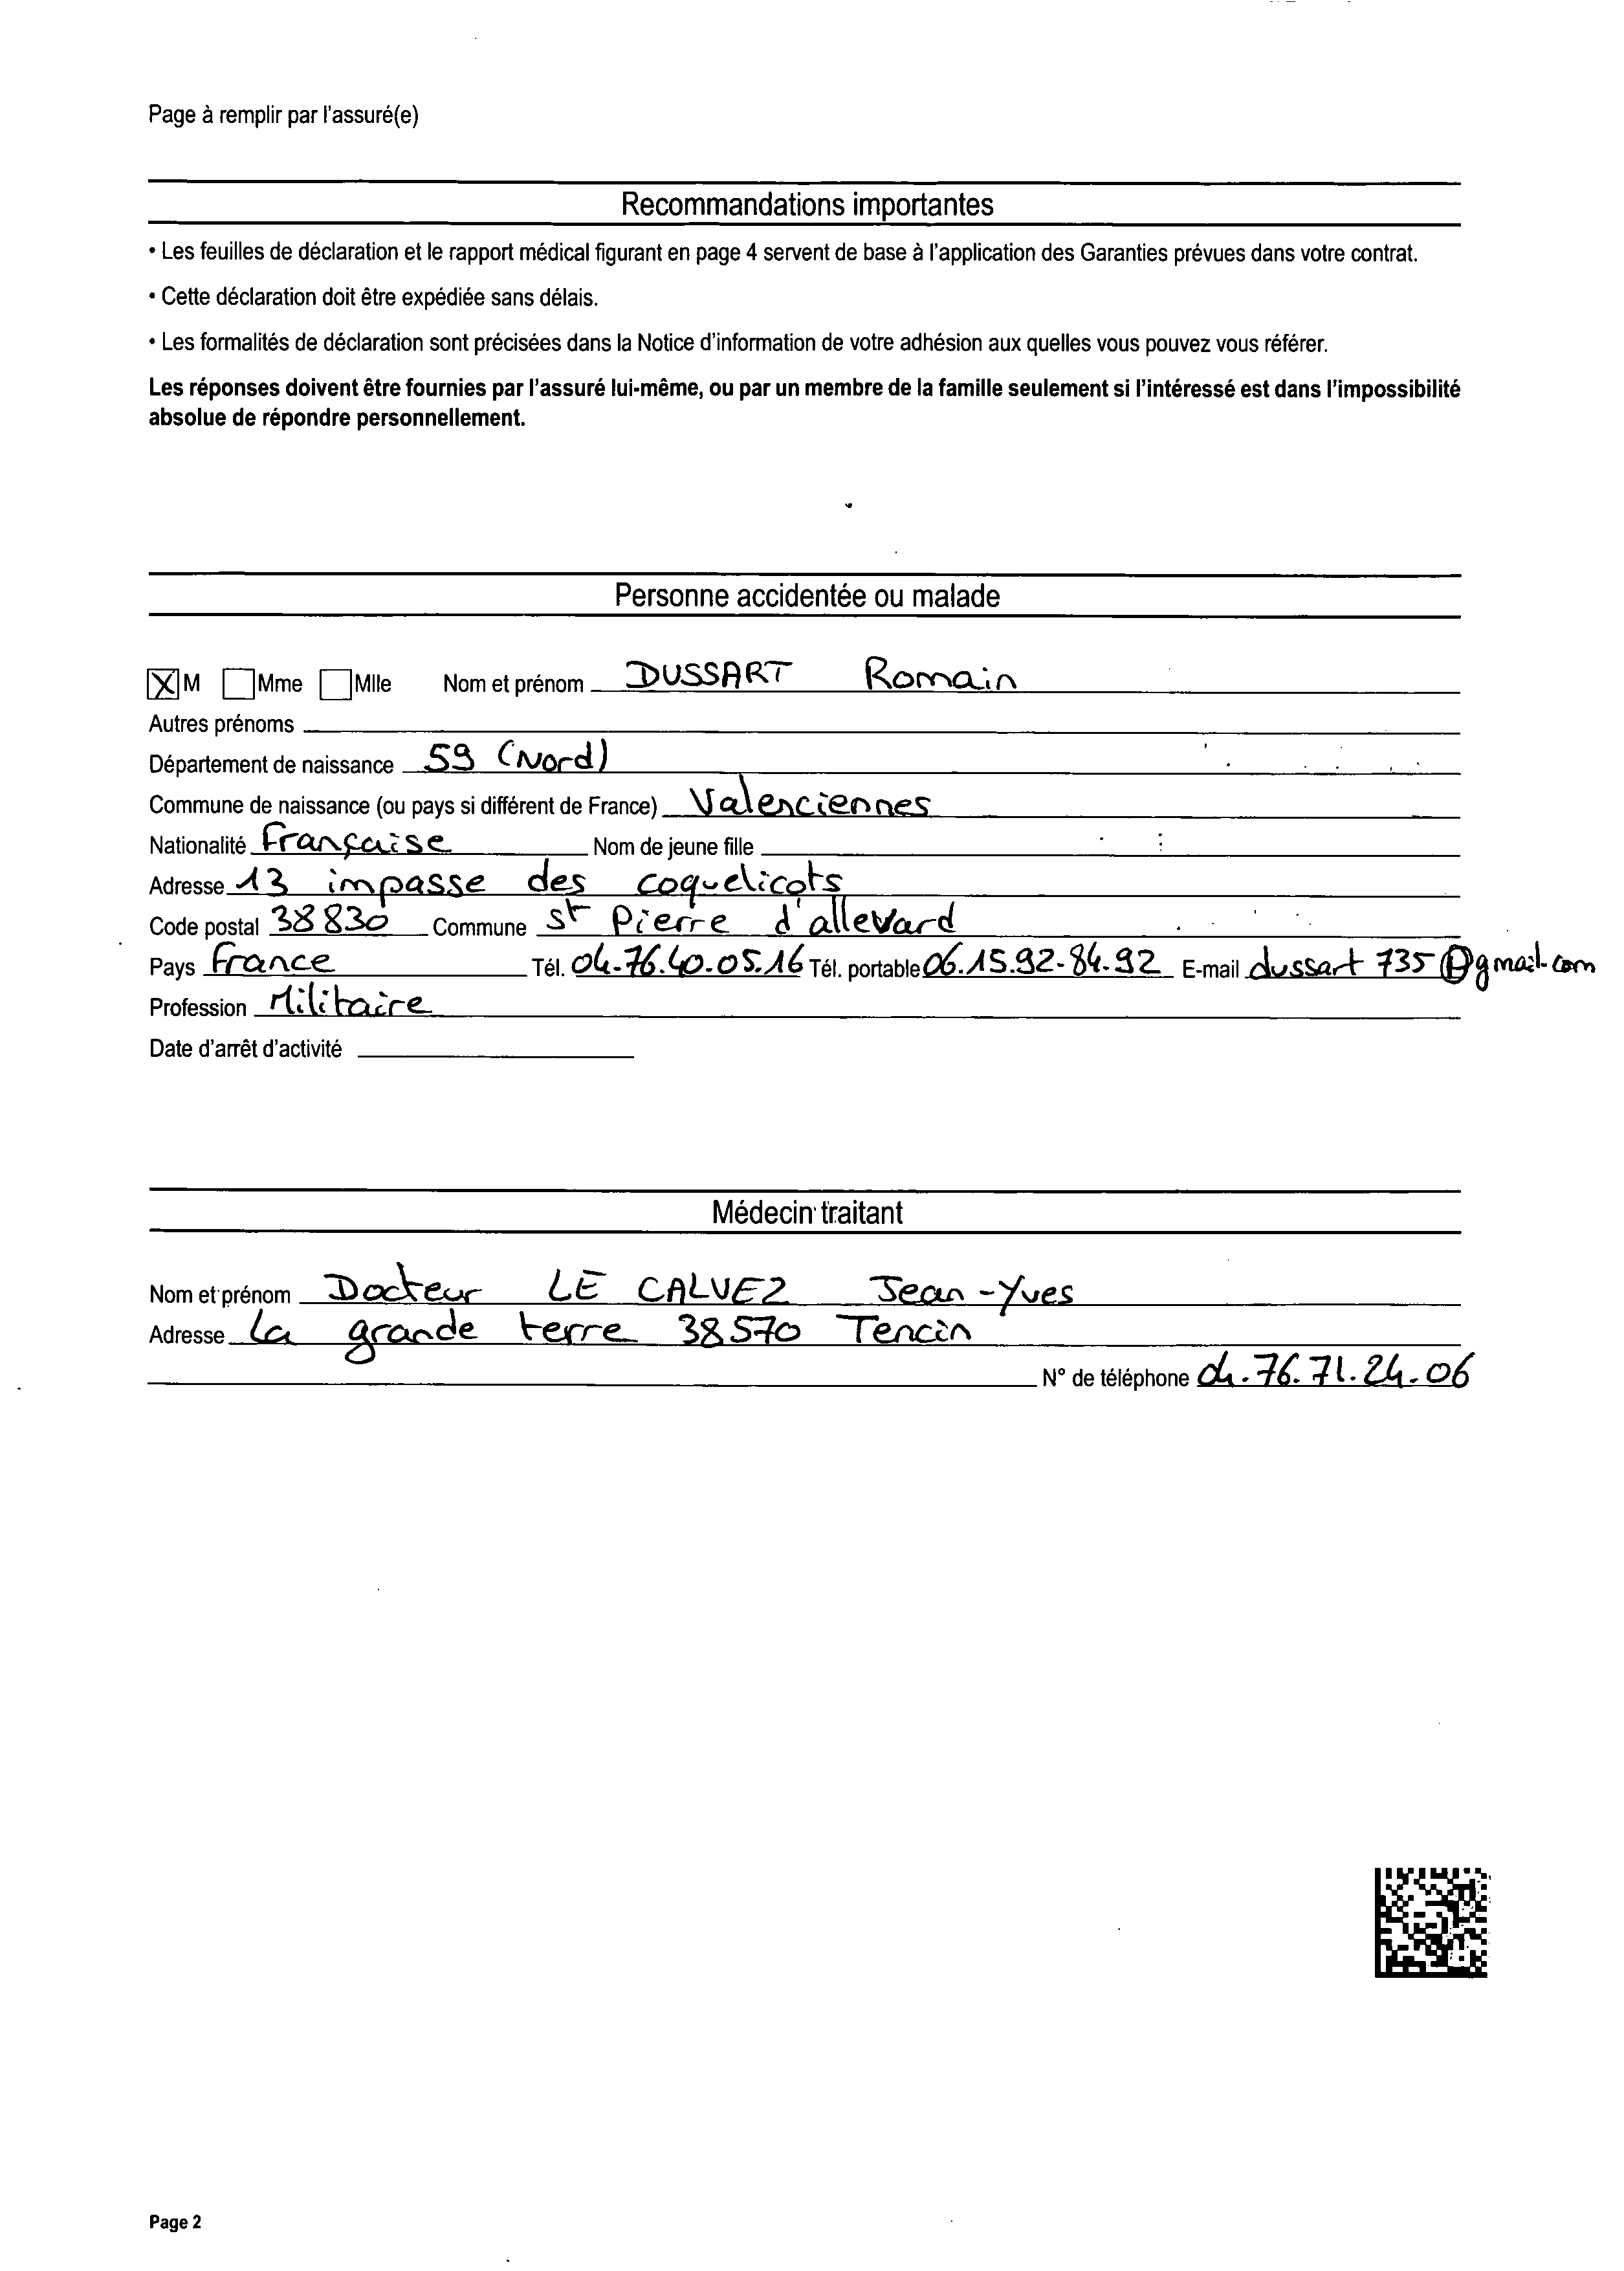 Page à remplir par l'assuré(e)
Recommandations importantes
• Les feuilles de déclaration et le rapport médical figurant en page 4 servent de base à l'application des Garanties prévues dans votre contrat.
• Cette déclaration doit être expédiée sans délais.
• Les formalités de déclaration sont précisées dans la Notice d'information de votre adhésion aux quelles vous pouvez vous référer.
Les réponses doivent être fournies par l'assuré lui-même, ou par un membre de la famille seulement si l'intéressé est dans l'impossibilité
absolue de répondre personnellement.
Personne accidentée ou malade
X M Mme Mlle Nom et prénom DUSSART Romain
Autres prénoms
Département de naissance 59 (Nord)
Commune de naissance (ou pays si différent de France) Valenciennes
Nationalité Française Nom de jeune fille
Adresse 13 impasse des coquelicots
Code postal 38830 Commune St Pierre d'allevard
Pays France Tél. 04.76.40.05.16 Tél. portable 06.15.92-84.92 E-mail dussart 735@gmail.com
Profession Militaire
Date d'arrêt d'activité
Médecin traitant
Nom et prénom Docteur LE CALVEZ Jean-Yves
Adresse La grande terre 38570 Tencin
N° de téléphone 04.76.71.24.06
Page 2